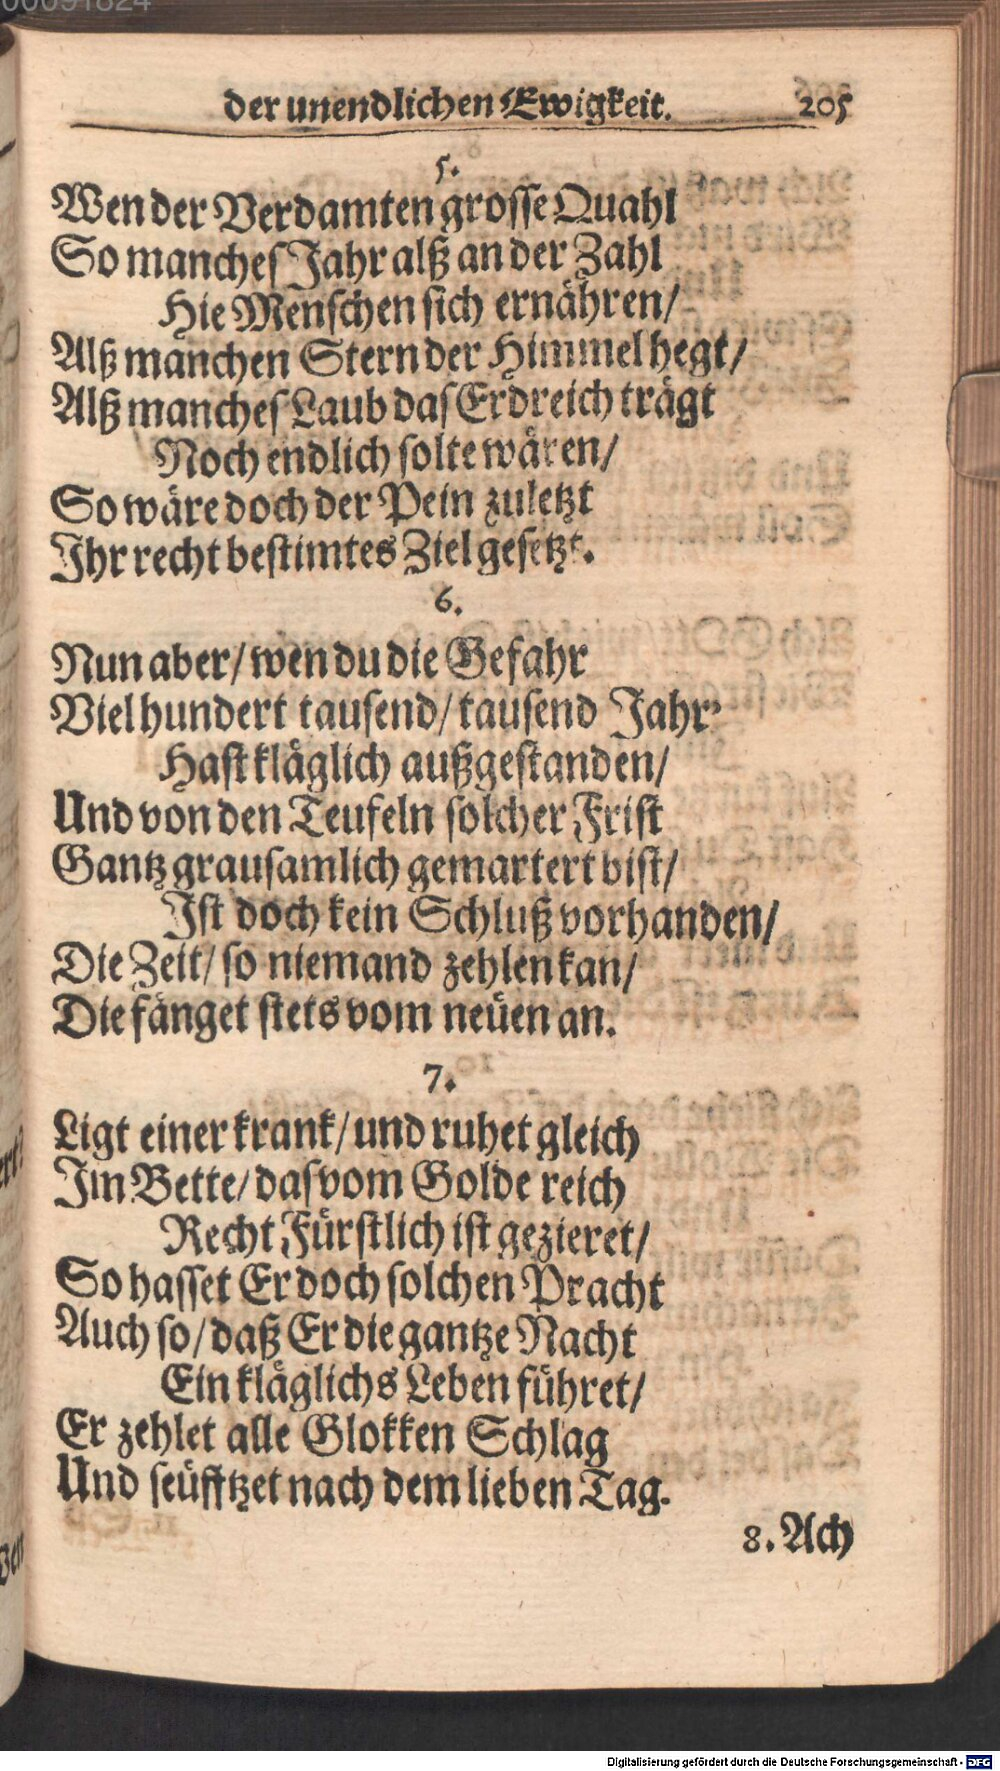 00091824
der unendlichen Ewigkeit. 205
5.
Wen der Verdamten grosse Quahl
So manches Jahr alß an der Zahl
Hie Menschen sich ernähren/
Alß manchen Stern der Himmel hegt/
Alß manches Laub das Erdreich trägt
Noch endlich solte wären/
So wäre doch der Pein zuletzt
Ihr recht bestimtes Ziel gesetzt.
6.
Nun aber/ wen du die Gefahr
Viel hundert tausend/ tausend Jahr
Hast kläglich außgestanden/
Und von den Teufeln solcher Frist
Gantz grausamlich gemartert bist/
Ist doch kein Schluß vorhanden/
Die Zeit/ so niemand zehlen kan/
Die fänget stets vom neüen an.
7.
Ligt einer krank/ und ruhet gleich
Im Bette/ das vom Golde reich
Recht Fürstlich ist gezieret/
So hasset Er doch solchen Pracht
Auch so/ daß Er die gantze Nacht
Ein kläglichs Leben führet/
Er zehlet alle Glokken Schlag
Und seüfftzet nach dem lieben Tag.
8. Ach
Digitalisierung gefördert durch die Deutsche Forschungsgemeinschaft - DFG